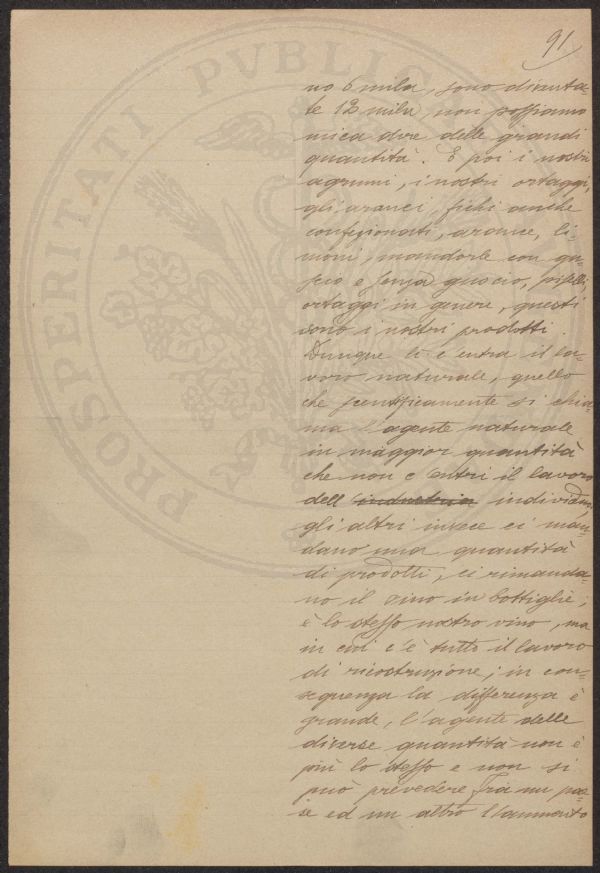 91
no 6 mila, sono diventa-
te 12 mila, non possiamo
mica dire delle grandi
quantità. E poi i nostri
agrumi, i nostri ortaggi,
gli aranci, fichi anche
confezionati, arance, li-
moni, mandorle con gu-
scio e senza guscio, piselli,
ortaggi in genere, questi
sono i nostri prodotti.
Dunque lì c'entra il la-
voro naturale, quello
che scentificamente si chia-
ma l'agente naturale
in maggior quantità
che non c'entri il lavoro
dell'industria individuo,
gli altri invece ci man-
dano una quantità
di prodotti, ci rimanda-
no il vino in bottiglie,
è lo stesso nostro vino, ma
in cui c'è tutto il lavoro
di ricostruzione; in con-
seguenza la differenza è
grande, l'agente delle
diverse quantità non è
più lo stesso e non si
può prevedere fra un pae-
se ed un altro l'aumento
PROSPERITATI PVBLICAE